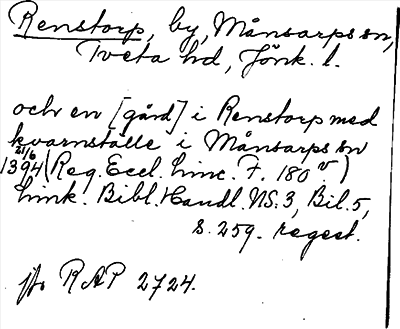 Renstorp, by, Månsarps sn,
Tveta hd, Jönk. l.
och en [gård] i Renstorp med
kvarnställe i Månsarps sn
21/6
1394 (Reg. Eccl. Linc. F. 180 v)
Link. Bibl. Handl. NS. 3, Bil. 5,
s. 259. regest.
jfr RAP 2724.